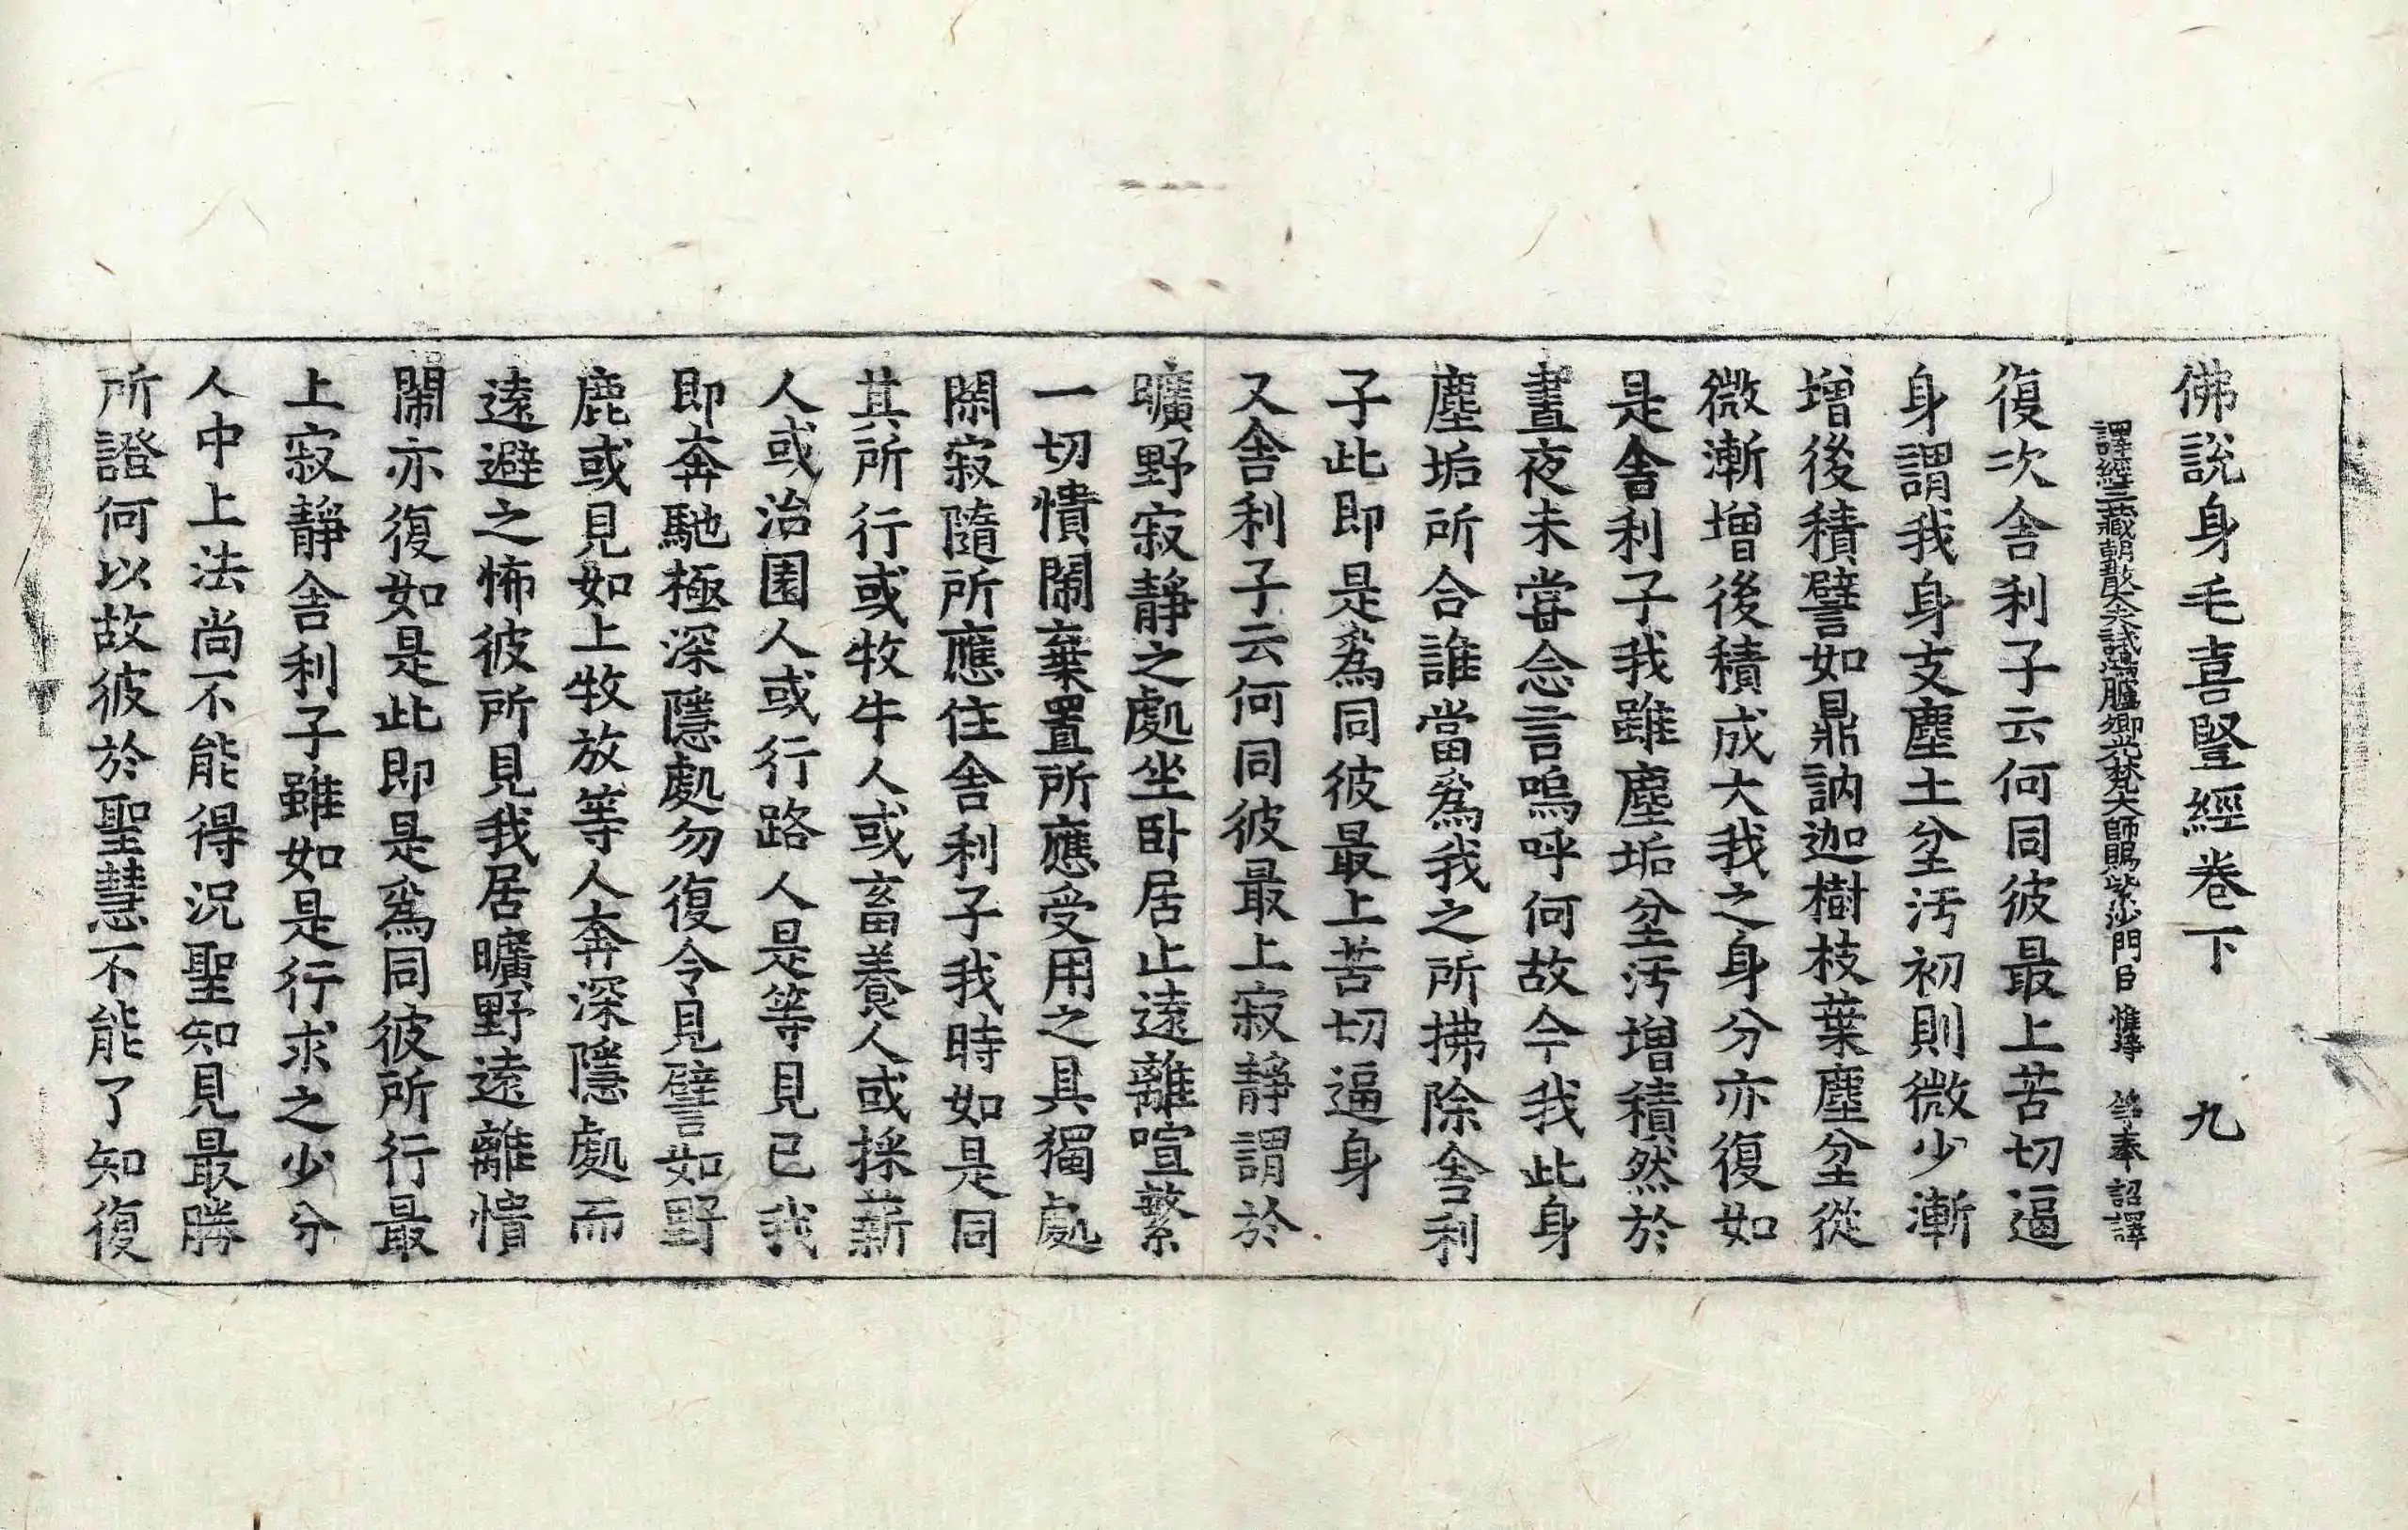 佛說身毛喜竪經卷下　九
譯經三藏朝散大夫試鴻臚卿光梵大師賜紫沙門臣 惟淨 等奉 詔譯
復次舍利子云何同彼最上苦切逼
身謂我身支塵土坌污初則微少漸
增後積譬如鼎訥迦樹枝葉塵坌從
微漸增後積成大我之身分亦復如
是舍利子我雖塵垢坌污增積然於
晝夜未甞念言嗚呼何故今我此身
塵垢所合誰當爲我之所拂除舍利
子此即是爲同彼最上苦切逼身
又舍利子云何同彼最上寂靜謂於
曠野寂靜之處坐卧居止遠離喧繁
一切憒閙棄置所應受用之具獨處
閑寂隨所應住舍利子我時如是同
其所行或牧牛人或畜養人或採薪
人或治園人或行路人是等見已我
即奔馳極深隱處勿復令見譬如野
鹿或見如上牧放等人奔深隱處而
遠避之怖彼所見我居曠野遠離憒
閙亦復如是此即是爲同彼所行最
上寂靜舍利子雖如是行求之少分
人中上法尚不能得況聖知見最勝
所證何以故彼於聖慧不能了知復